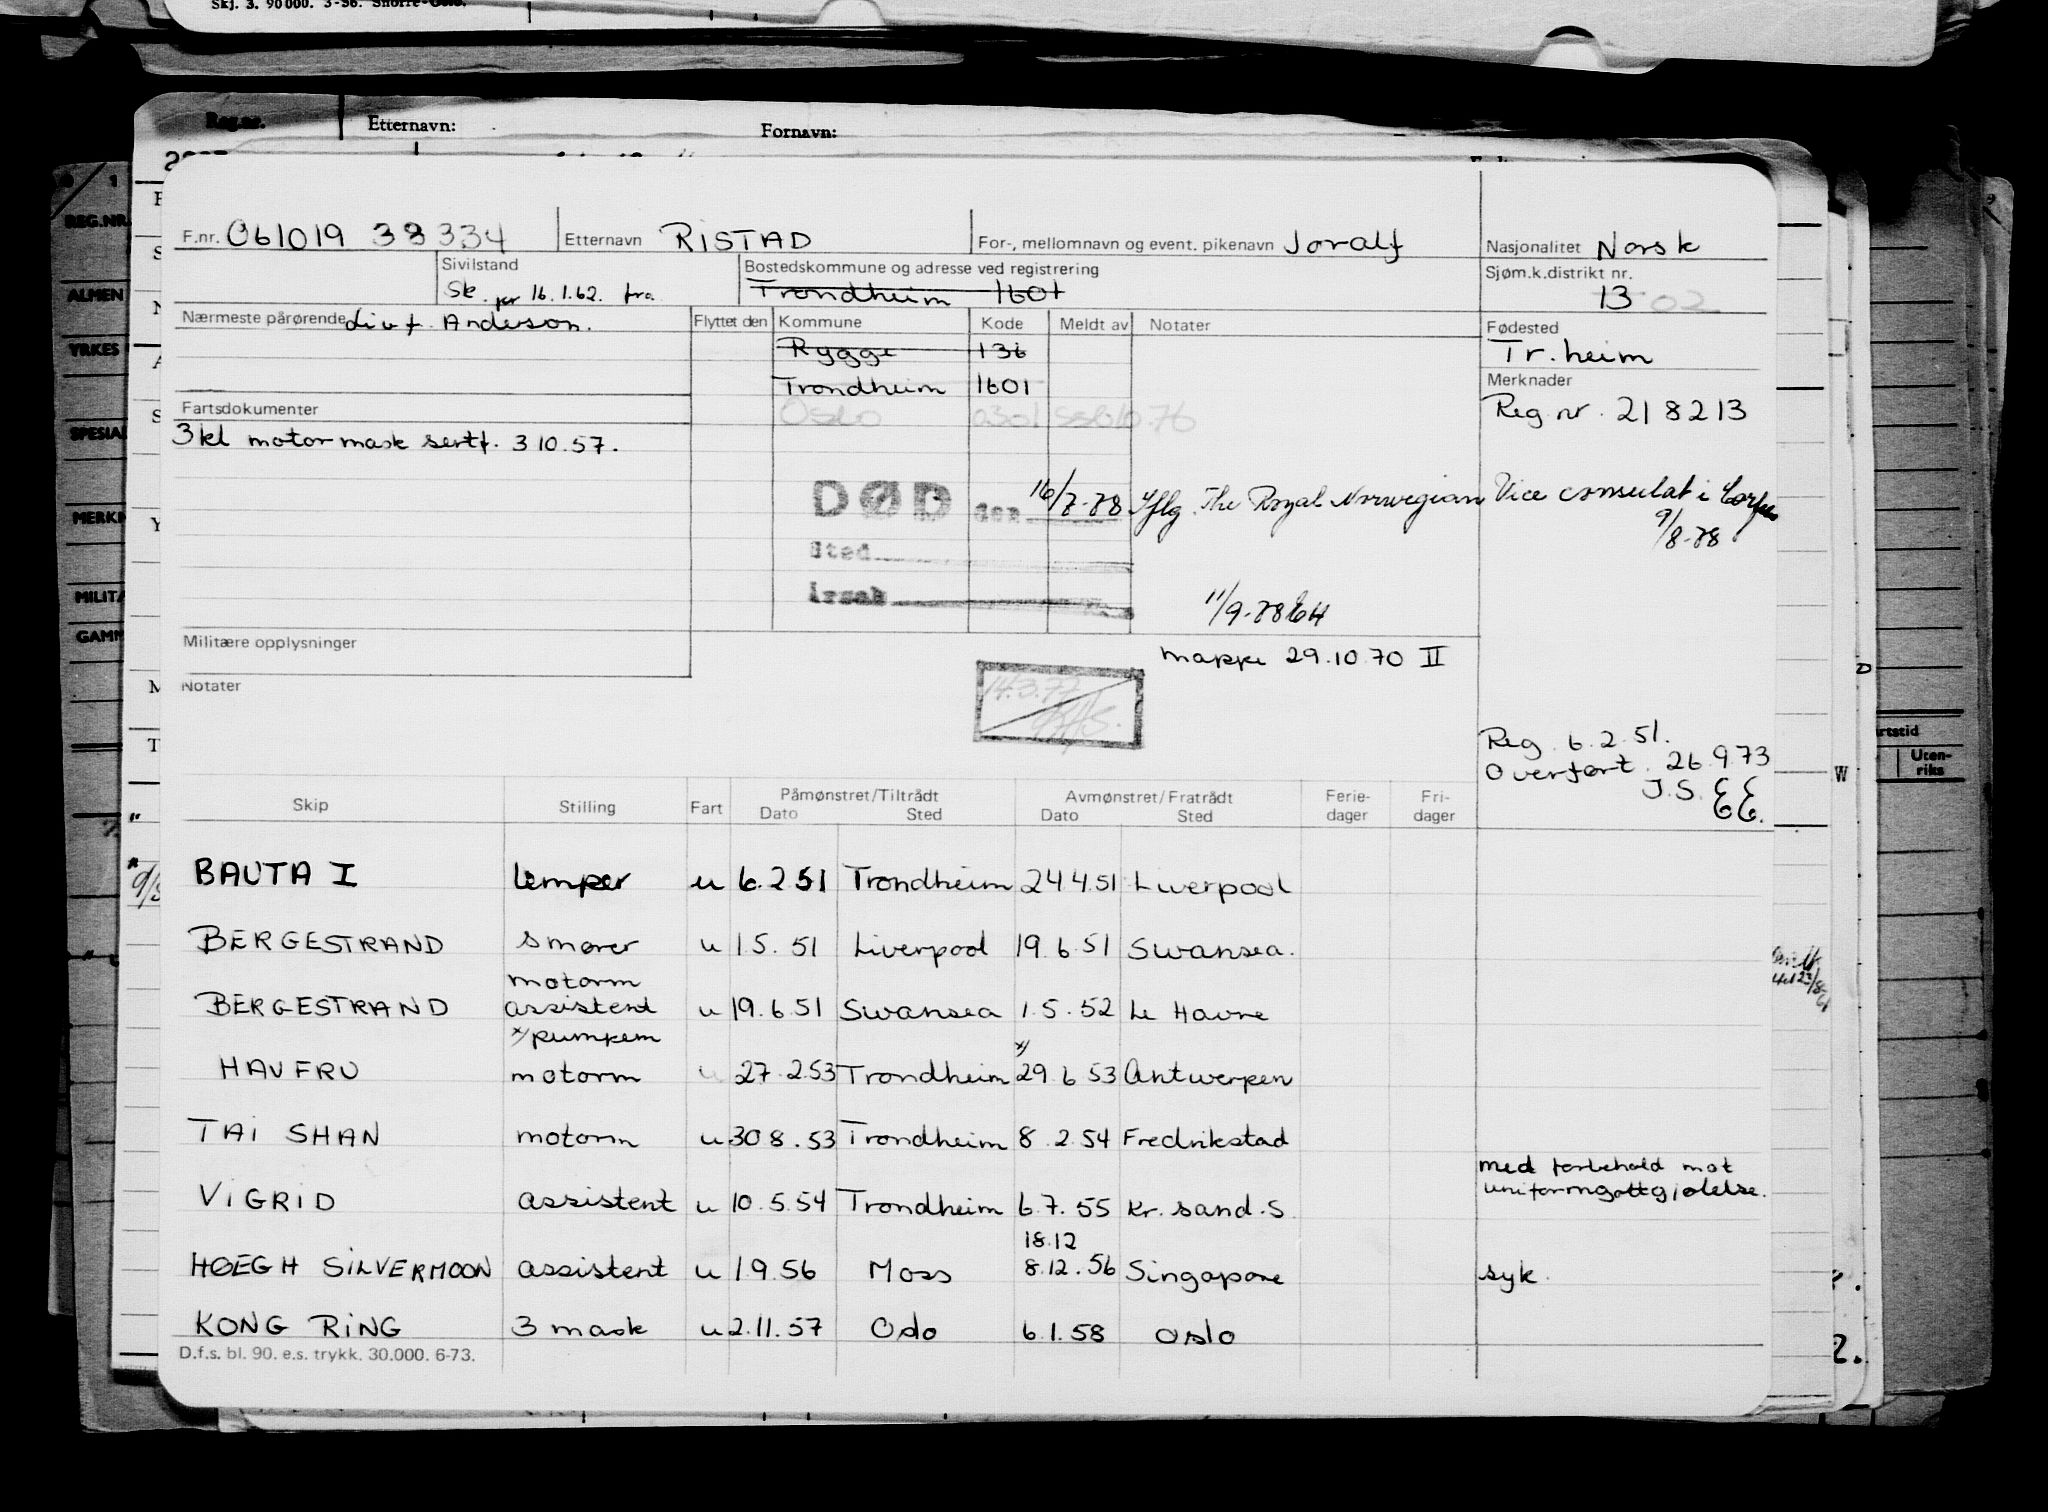 Skj. 3. 90000. 3-56.
Reg.nr. Etternavn: Fornavn:
F.nr. 061019 38334 Etternavn RISTAD For-, mellomnavn og event. pikenavn Joralf Nasjonalitet Norsk
Sivilstand Sk. per 16.1.62. fra Bostedskommune og adresse ved registrering Trondheim 1601 Sjøm.k.distrikt nr. 13 02
Nærmeste pårørende Liv f. Anderson. Flyttet den Kommune Kode Meldt av Notater Fødested
Rygge 136 Tr.heim
Trondheim 1601 Merknader
Fartsdokumenter Oslo 0301 SSB 10.76 Reg nr. 218213
3kl motormask sertf. 3 10.57.
DØD den 16/7-78 Iflg. The Royal Norwegian Vice consulat i Corfu
9/8-78
Sted
Årsak 11/9-78
Militære opplysninger mappe 29.10.70 II
Notater 14.3.77
Reg. 6.2.51.
Overført. 26.9.73
J.S.
Skip Stilling Fart Påmønstret/Tiltrådt Dato Sted Avmønstret/Fratrådt Dato Sted Ferie-dager Fri-dager
BAUTA I lemper u 6.2.51 Trondheim 24.4.51 Liverpool
BERGESTRAND smører u 1.5.51 Liverpool 19.6.51 Swansea.
motorm
BERGESTRAND assistent u 19.6.51 Swansea 1.5.52 Le Havre
x/ pumpem x/
HAVFRU motorm u 27.2.53 Trondheim 29.6.53 Antwerpen
TAI SHAN motorm u 30 8.53 Trondheim 8.2.54 Fredrikstad
med forbehold mot
uniformgottgjølelse.
VIGRID assistent u 10.5.54 Trondheim 6.7.55 Kr. sand.S
18.12
HØEGH SILVERMOON assistent u 1.9.56 Moss 8.12.56 Singapore syk.
KONG RING 3 mask u 2.11.57 Oslo 6.1.58 Oslo
D.f.s. bl. 90. e.s. trykk. 30.000. 6-73.